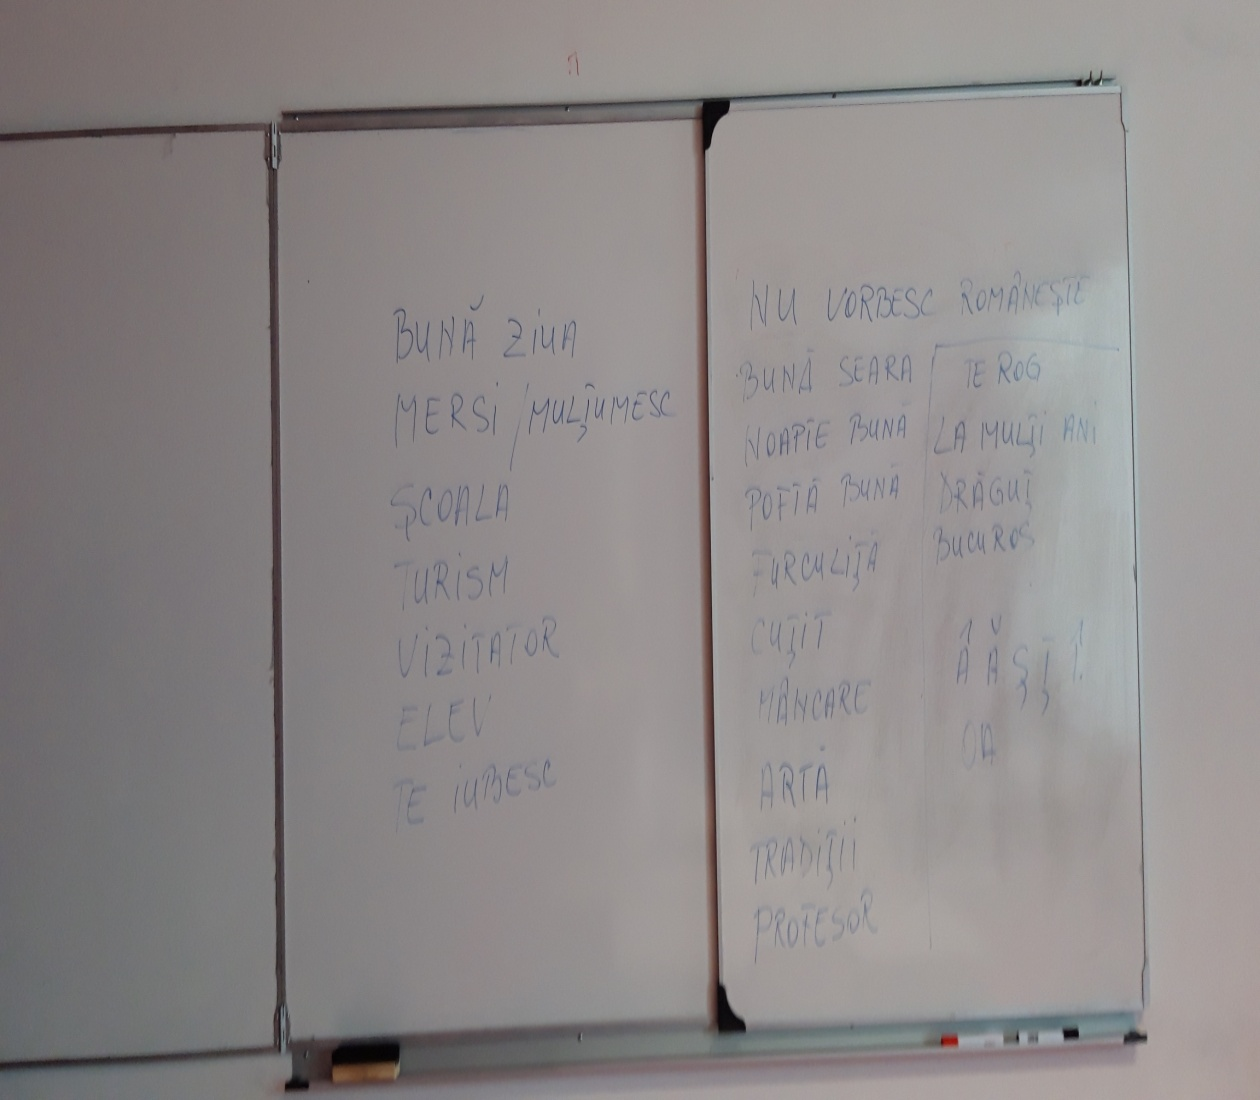 BUNĂ ZIUA
MERSI / MULŢUMESC
ŞCOALA
TURISM
VIZITATOR
ELEV
TE IUBESC
NU VORBESC ROMÂNEŞTE
BUNĂ SEARA
NOAPTE BUNĂ
POFTĂ BUNĂ
FURCULIŢĂ
CUŢIT
MÂNCARE
ARTĂ
TRADIŢII
PROFESOR
TE ROG
LA MULŢI ANI
DRĂGUŢ
BUCUROS
Â Ă Ş Ţ Î
OA